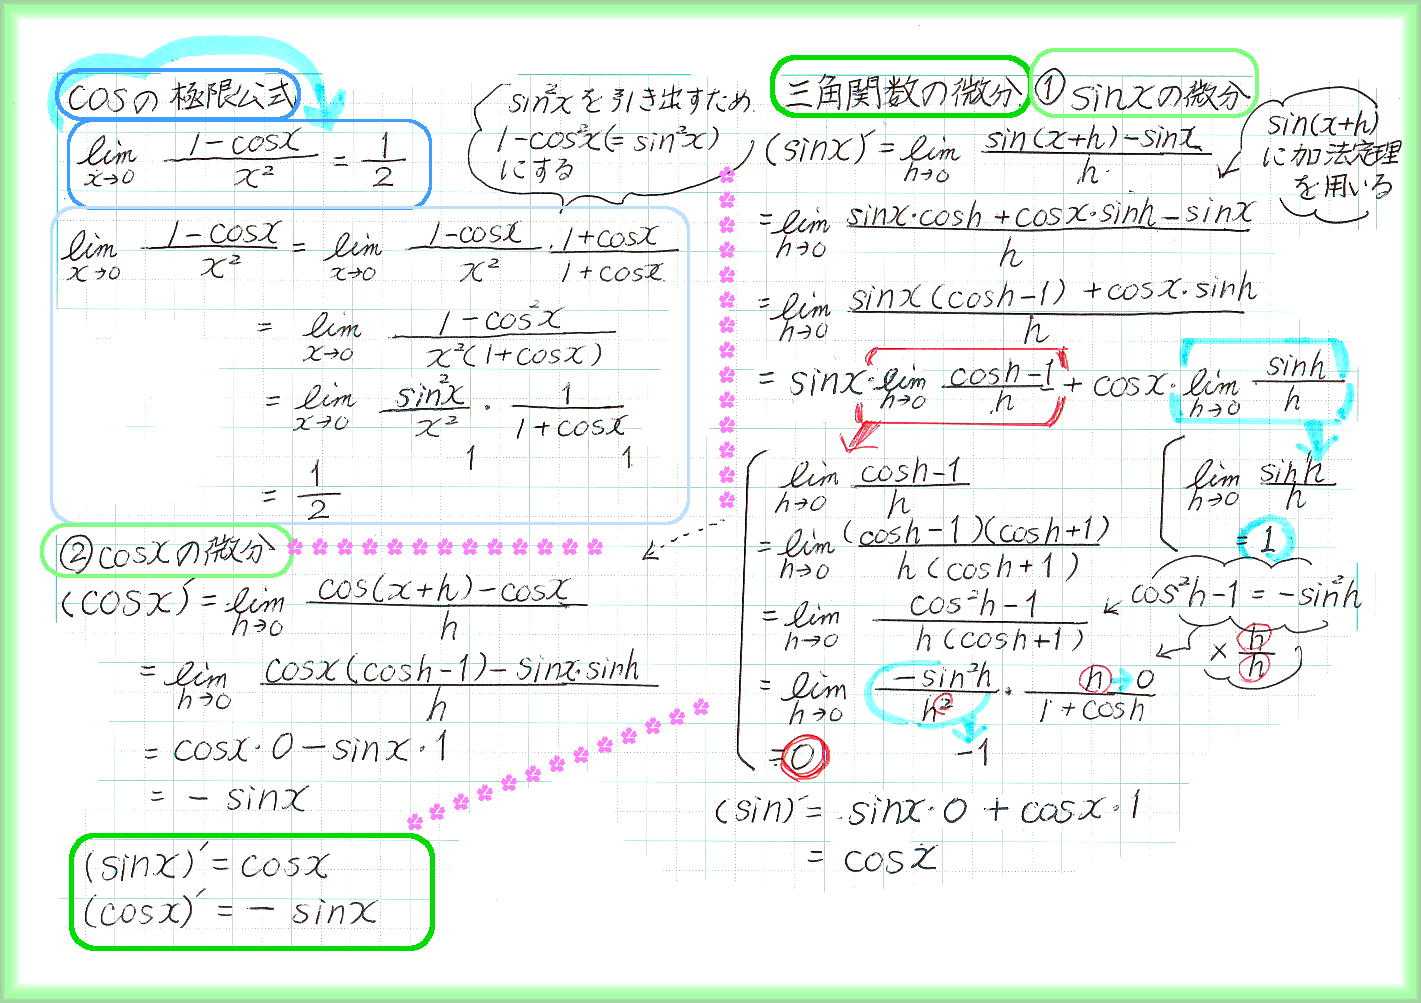 cosの極限公式
lim x→0 (1-cosx)/x² = 1/2
sin²xを引き出すため
1-cos²x(=sin²x)
にする
lim x→0 (1-cosx)/x² = lim x→0 (1-cosx)/x² · (1+cosx)/(1+cosx)
= lim x→0 (1-cos²x)/(x²(1+cosx))
= lim x→0 sin²x/x² · 1/(1+cosx)
1 1
= 1/2
三角関数の微分 ① sinxの微分
(sinx)′ = lim h→0 (sin(x+h)-sinx)/h
sin(x+h)
に加法定理
を用いる
= lim h→0 (sinx·cosh+cosx·sinh-sinx)/h
= lim h→0 (sinx(cosh-1)+cosx·sinh)/h
= sinx·lim h→0 (cosh-1)/h + cosx·lim h→0 sinh/h
lim h→0 (cosh-1)/h
= lim h→0 (cosh-1)(cosh+1)/(h(cosh+1))
= lim h→0 (cos²h-1)/(h(cosh+1))
= lim h→0 -sin²h/h² · h/(1+cosh)
→0
-1
= 0
lim h→0 sinh/h
= 1
cos²h-1=-sin²h
× h/h
(sin)′= sinx·0 + cosx·1
= cosx
② cosxの微分
(cosx)′ = lim h→0 (cos(x+h)-cosx)/h
= lim h→0 (cosx(cosh-1)-sinx·sinh)/h
= cosx·0-sinx·1
= - sinx
(sinx)′= cosx
(cosx)′= - sinx